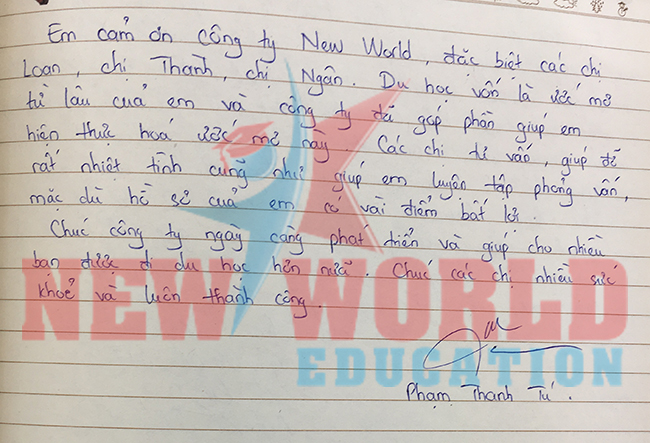 Em cảm ơn công ty New World, đặc biệt các chị
Loan, chị Thanh, chị Ngân. Du học vốn là ước mơ
từ lâu của em và công ty đã góp phần giúp em
hiện thực hoá ước mơ này. Các chị tư vấn, giúp đỡ
rất nhiệt tình cũng như giúp em luyện tập phỏng vấn,
mặc dù hồ sơ của em có vài điểm bất lợi.
Chúc công ty ngày càng phát triển và giúp cho nhiều
bạn được đi du học hơn nữa. Chúc các chị nhiều sức
khoẻ và luôn thành công.
NEW WORLD
EDUCATION
Phạm Thanh Tú.